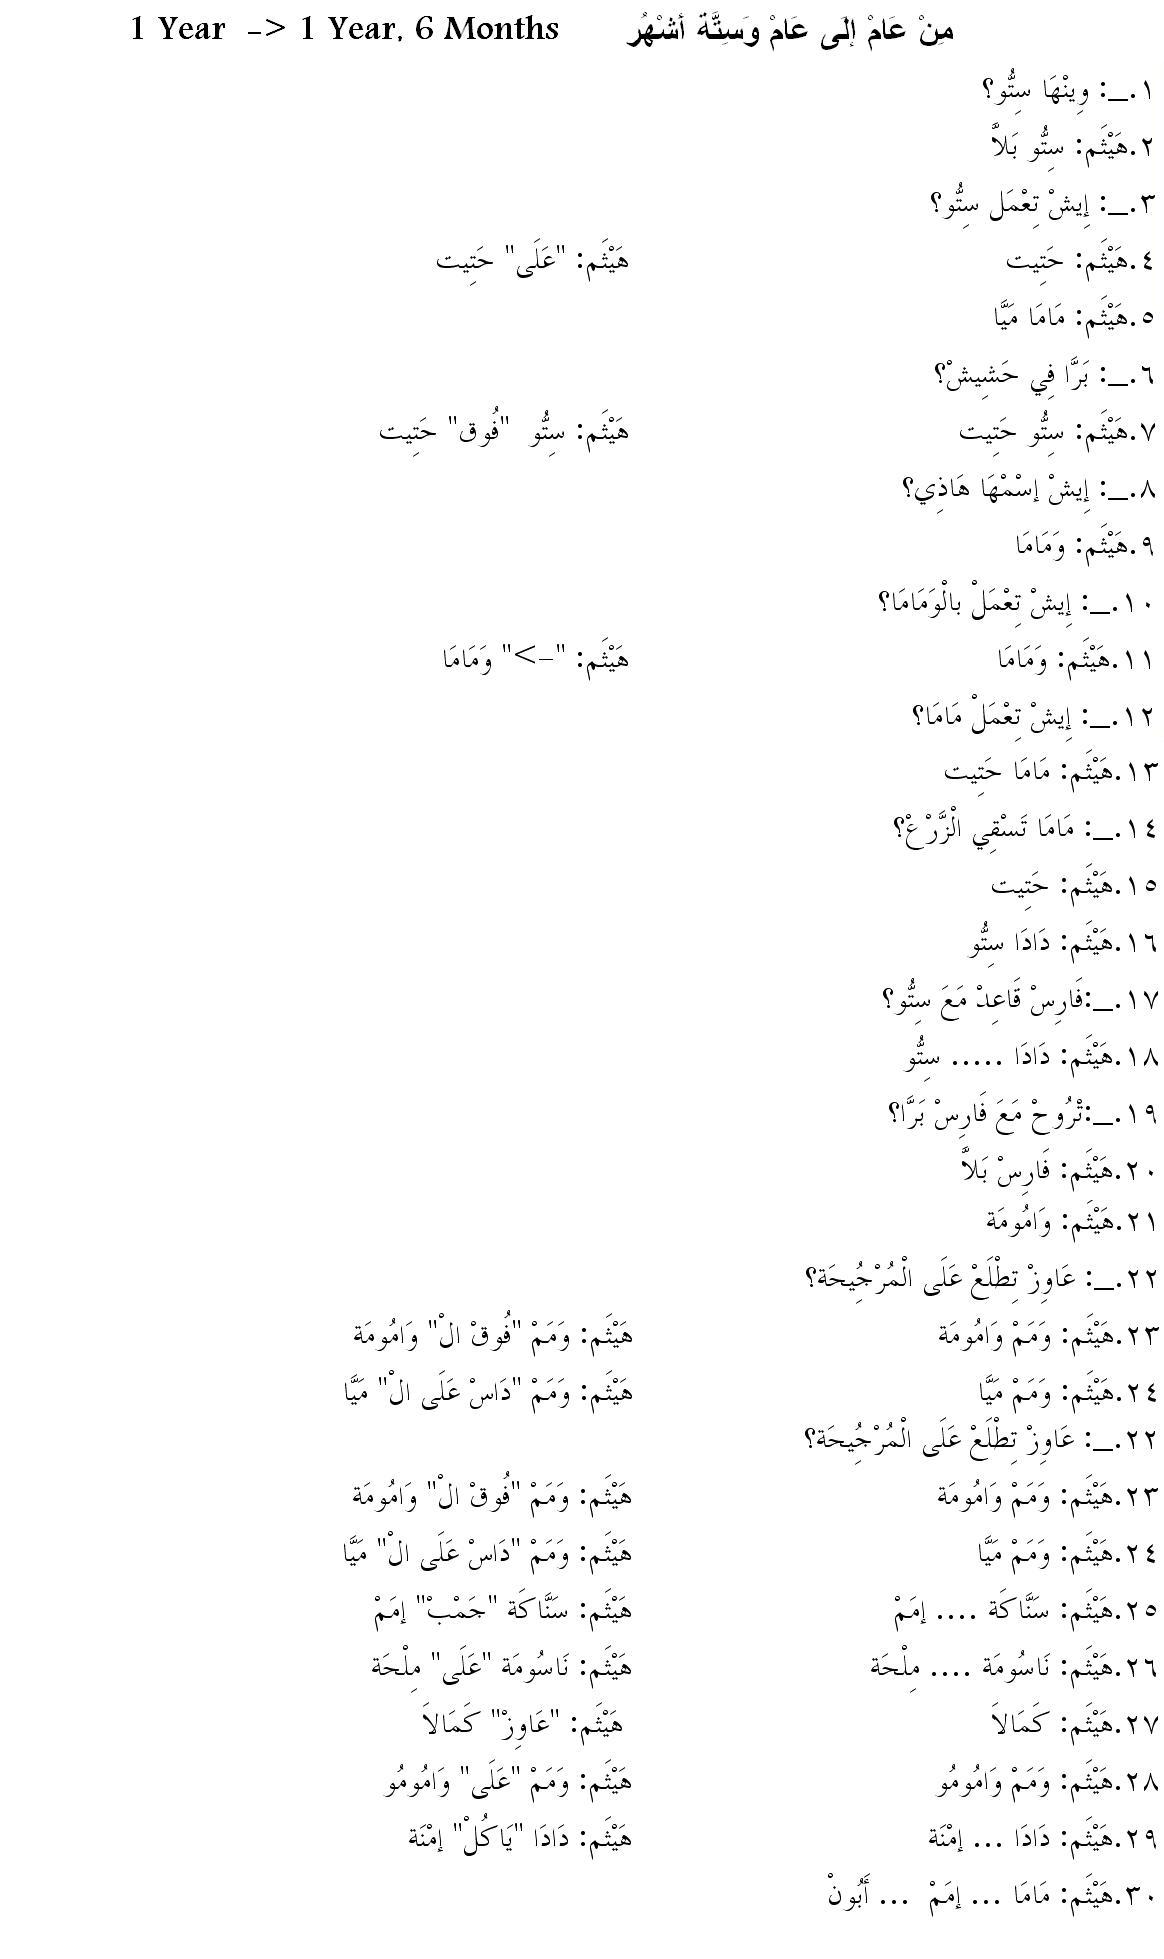 مِنْ عَامْ إِلَى عَامْ وَسِتَّة أَشْهُر 1 Year -> 1 Year, 6 Months
١._: وِينْهَا سِتُّو؟
٢.هَيْثَم: سِتُّو بَلاَّ
٣._: إِيشْ تِعْمَل سِتُّو؟
٤.هَيْثَم: حَتِيت هَيْثَم: "عَلَى" حَتِيت
٥.هَيْثَم: مَامَا مَيَّا
٦._: بَرَّا فِي حَشِيشْ؟
٧.هَيْثَم: سِتُّو حَتِيت هَيْثَم: سِتُّو "فُوق" حَتِيت
٨._: إِيشْ إسْمْهَا هَاذِي؟
٩.هَيْثَم: وَمَامَا
١٠._: إِيشْ تِعْمَلْ بالْوَمَامَا؟
١١.هَيْثَم: وَمَامَا هَيْثَم: "->" وَمَامَا
١٢._: إِيشْ تِعْمَلْ مَامَا؟
١٣.هَيْثَم: مَامَا حَتِيت
١٤._: مَامَا تَسْقِي الْزَّرْعْ؟
١٥.هَيْثَم: حَتِيت
١٦.هَيْثَم: دَادَا سِتُّو
١٧._:فَارِسْ قَاعِدْ مَعَ سِتُّو؟
١٨.هَيْثَم: دَادَا ..... سِتُّو
١٩._:تْرُوحْ مَعَ فَارِسْ بَرَّا؟
٢٠.هَيْثَم: فَارِسْ بَلاَّ
٢١.هَيْثَم: وَامُومَة
٢٢._: عَاوِزْ تِطْلَعْ عَلَى الْمُرْجِيحَة؟
٢٣.هَيْثَم: وَمَمْ وَامُومَة هَيْثَم: وَمَمْ "فُوقْ الْ" وَامُومَة
٢٤.هَيْثَم: وَمَمْ مَيَّا هَيْثَم: وَمَمْ "دَاسْ عَلَى الْ" مَيَّا
٢٢._: عَاوِزْ تِطْلَعْ عَلَى الْمُرْجِيحَة؟
٢٣.هَيْثَم: وَمَمْ وَامُومَة هَيْثَم: وَمَمْ "فُوقْ الْ" وَامُومَة
٢٤.هَيْثَم: وَمَمْ مَيَّا هَيْثَم: وَمَمْ "دَاسْ عَلَى الْ" مَيَّا
٢٥.هَيْثَم: سَنَّاكَة .... إمَمْ هَيْثَم: سَنَّاكَة "جَمْبْ" إمَمْ
٢٦.هَيْثَم: نَاسُومَة .... مِلْحَة هَيْثَم: نَاسُومَة "عَلَى" مِلْحَة
٢٧.هَيْثَم: كَمَالاَ هَيْثَم: "عَاوِزْ" كَمَالاَ
٢٨.هَيْثَم: وَمَمْ وَامُومُو هَيْثَم: وَمَمْ "عَلَى" وَامُومُو
٢٩.هَيْثَم: دَادَا ... إمْنَة هَيْثَم: دَادَا "يَاكُلْ" إمْنَة
٣٠.هَيْثَم: مَامَا ... إمَمْ ... أَبُونْ